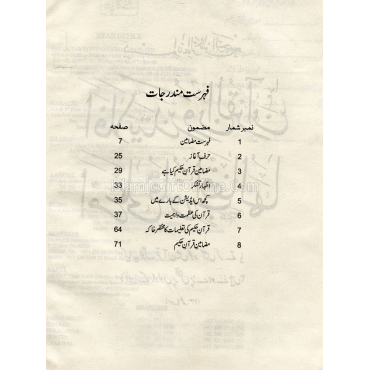 فہرست مندرجات
نمبر شمار مضمون صفحه
1 فہرست مضامین 7
2 حرف آغاز 25
3 مضامین قرآن حکیم کیا ہے 29
4 اظہار تشکر 33
5 کچھ اس ایڈیشن کے بارے میں 35
6 قرآن کی عظمت و اہمیت 37
7 قرآن حکیم کی تعلیمات کا مختصر خاکہ 64
8 مضامین قرآن حکیم 71